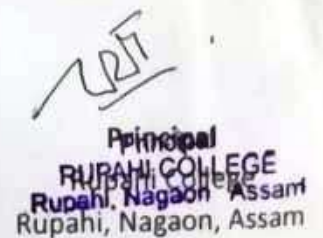 Principal
RUPAHI COLLEGE
Rupahi, Nagaon Assam
Rupahi, Nagaon, Assam